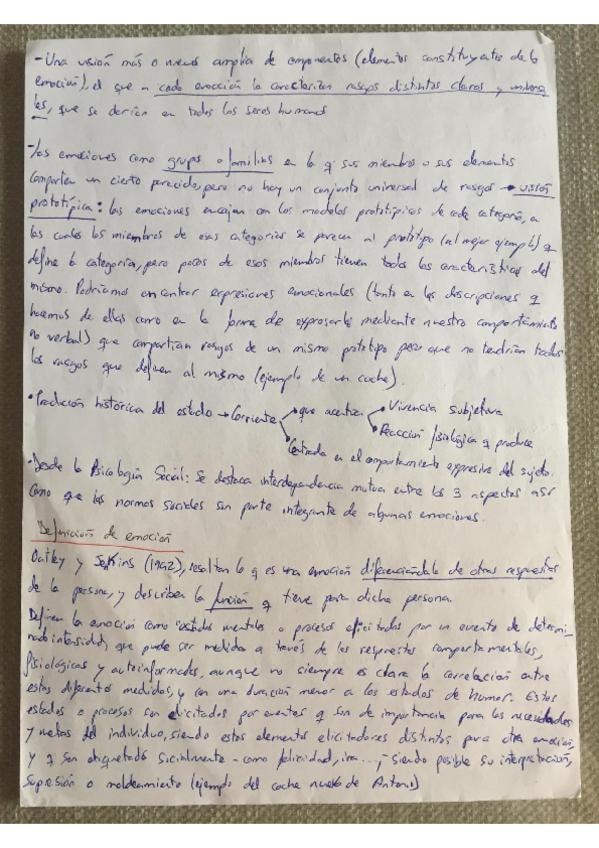 - Una visión más o menos amplia de componentes (elementos constituyentes de la
emoción), el que a cada emoción la caracterizan rasgos distintos claros y universa
les, que se darían en todos los seres humanos
- Las emociones como grupos o familias en la q sus miembros o sus elementos
comparten un cierto parecido, pero no hay un conjunto universal de rasgos → visión
prototípica: las emociones encajan con los modelos prototípicos de cada categoría, a
los cuales los miembros de esas categorías se parecen al prototipo (al mejor ejemplo) q
define la categoría, pero pocos de esos miembros tienen todas las características del
mismo. Podríamos encontrar expresiones emocionales (tanto en las descripciones q
hacemos de ellas como en la forma de expresarlas mediante nuestro comportamiento
no verbal) que compartían rasgos de un mismo prototipo pero que no tendrían todos
los rasgos que definen al mismo (ejemplo de un coche).
• Tradición histórica del estudio → Corriente → que acentúa → Vivencia subjetiva
→ Reacción fisiológica q produce
→ Centrada en el comportamiento expresivo del sujeto.
• Desde la Psicología Social: Se destaca interdependencia mutua entre los 3 aspectos así
como que las normas sociales son parte integrante de algunas emociones.
Definición de emoción
Oatley y Jenkins (1992), resaltan lo q es una emoción diferenciándola de otras respuestas
de la persona, y describen la función q tiene para dicha persona.
Definen la emoción como "estados mentales o procesos elicitados por un evento de determi-
nada intensidad, que puede ser medida a través de las respuestas comportamentales,
fisiológicas y autoinformadas, aunque no siempre es clara la correlación entre
estas diferentes medidas, y con una duración menor a los estados de humor. Estos
estados o procesos son elicitados por eventos q son de importancia para las necesidades
y metas del individuo, siendo estos elementos elicitadores distintos para otra emoción,
y q son etiquetado socialmente - como felicidad, ira...,- siendo posible su interpretación,
supresión o moldeamiento (ejemplo del coche nuevo de Antonio)